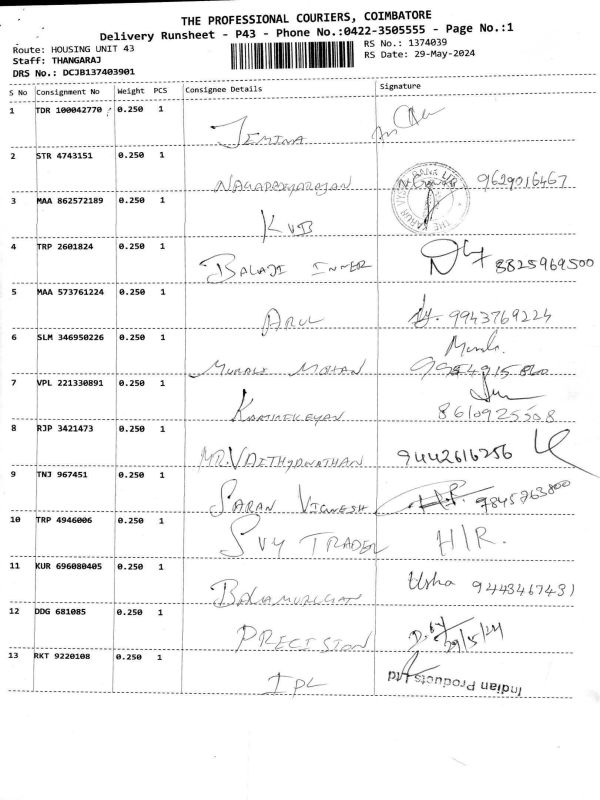 THE PROFESSIONAL COURIERS, COIMBATORE
Delivery Runsheet - P43 - Phone No.:0422-3505555 - Page No.:1
Route: HOUSING UNIT 43
RS No.: 1374039
Staff: THANGARAJ
RS Date: 29-May-2024
DRS No.: DCJB137403901
S No Consignment No Weight PCS Consignee Details Signature
1 TDR 100042770 0.250 1
JEMINA
2 STR 4743151 0.250 1
9629016467
3 MAA 862572189 0.250 1
KVB
4 TRP 2601824 0.250 1
BALAJI INNER 8825969500
5 MAA 573761224 0.250 1
ARUL 9943769224
6 SLM 346950226 0.250 1
MURALI MOHAN
7 VPL 221330891 0.250 1
KARTHIKEYAN 8610925508
8 RJP 3421473 0.250 1
MR.VAITHYANATHAN 9442616256
9 TNJ 967451 0.250 1
SARAN VIGNESH 9845763800
10 TRP 4946006 0.250 1
SVY TRADER H/R.
11 KUR 696080405 0.250 1
BALAMURUGAN Usha 9443467431
12 DDG 681085 0.250 1
PRECISION 29/5/24
13 RKT 9220108 0.250 1
IPL Indian Products Ltd